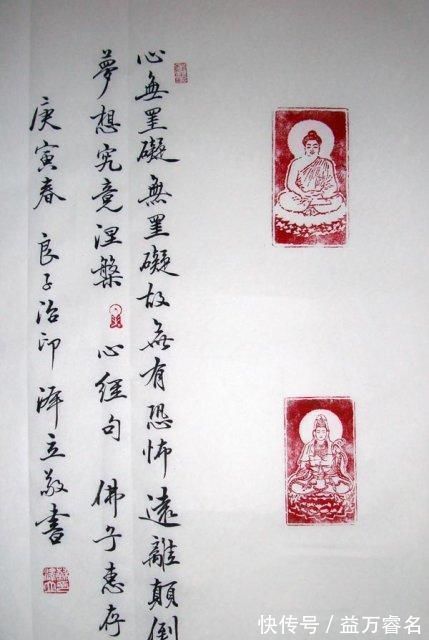 心無罣礙無罣礙故無有恐怖遠離顛倒
夢想究竟涅槃 心經句 佛子惠存
庚寅春 良子治印 立敬書
快传号/益万睿名